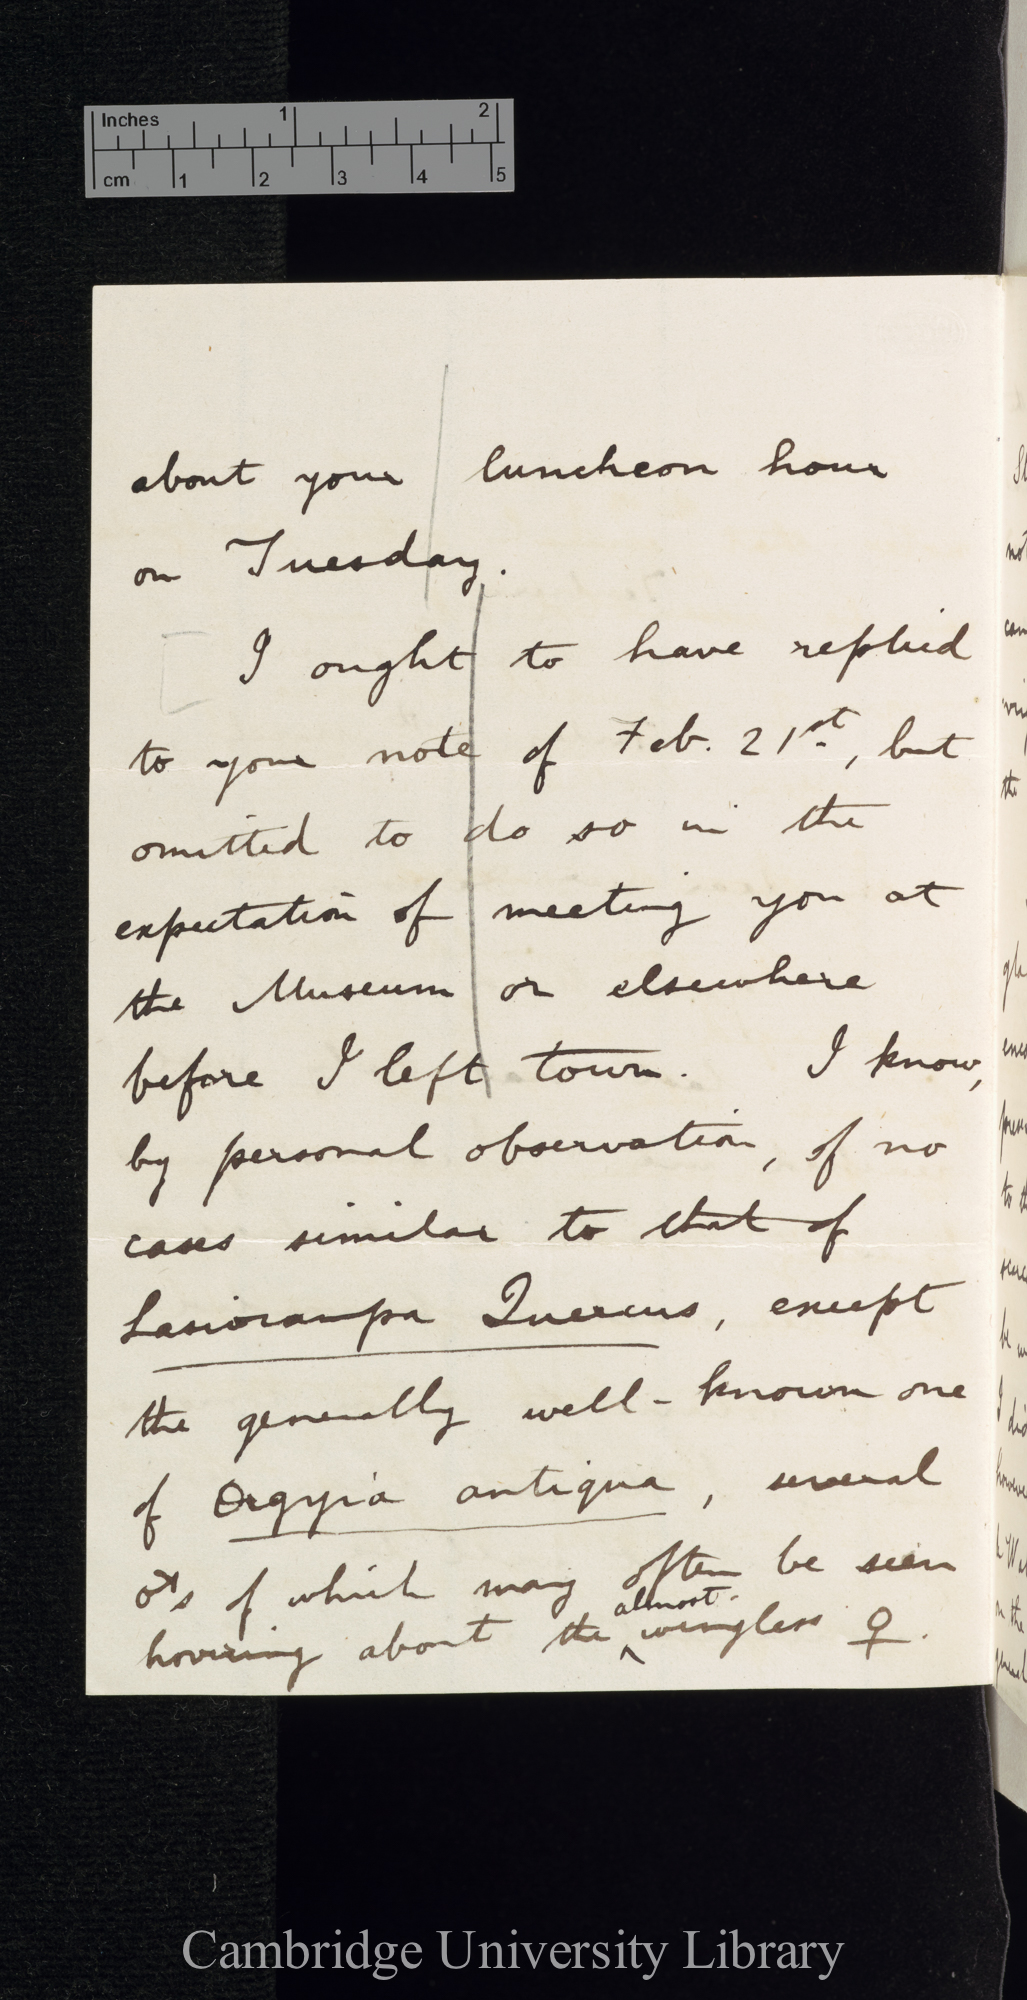 Inches 1 2
cm 1 2 3 4 5
about your luncheon hour
on Tuesday.
I ought to have replied
to your note of Feb. 21st, but
omitted to do so in the
expectation of meeting you at
the Museum or elsewhere
before I left town. I know,
by personal observation, of no
cases similar to that of
Lasiocampa Quercus, except
the generally well-known one
of Orgyia antiqua, several
♂s of which may often be seen
almost
hovering about the ‸ wingless ♀.
Cambridge University Library